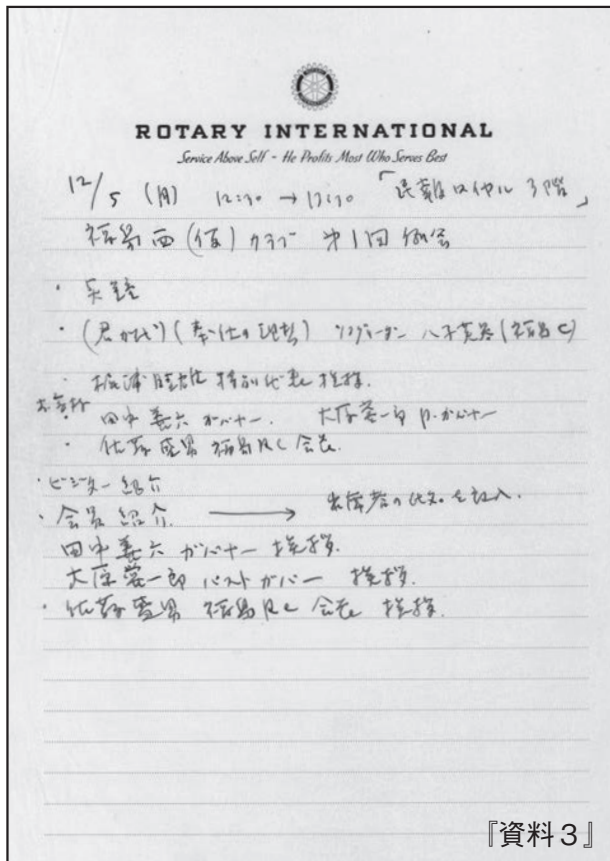 ROTARY INTERNATIONAL
Service Above Self - He Profits Most Who Serves Best
12/5 (月) 12:30 → 13:30 「辰巳屋ロイヤル3階」
福島西(仮)クラブ 第1回例会
・点鐘
・(君が代)(奉仕の理想) ソングリーダー (福島C)
・特別代表 挨拶.
田中善六 ガバナー. 大原 一郎 P.ガバナー
・佐藤 男 福島RC 会長.
・ビジター紹介
・会員紹介. → 出席者の氏名を記入.
田中善六 ガバナー 挨拶.
大原 一郎 パストガバナー 挨拶.
・佐藤 男 福島RC 会長 挨拶.
『資料3』